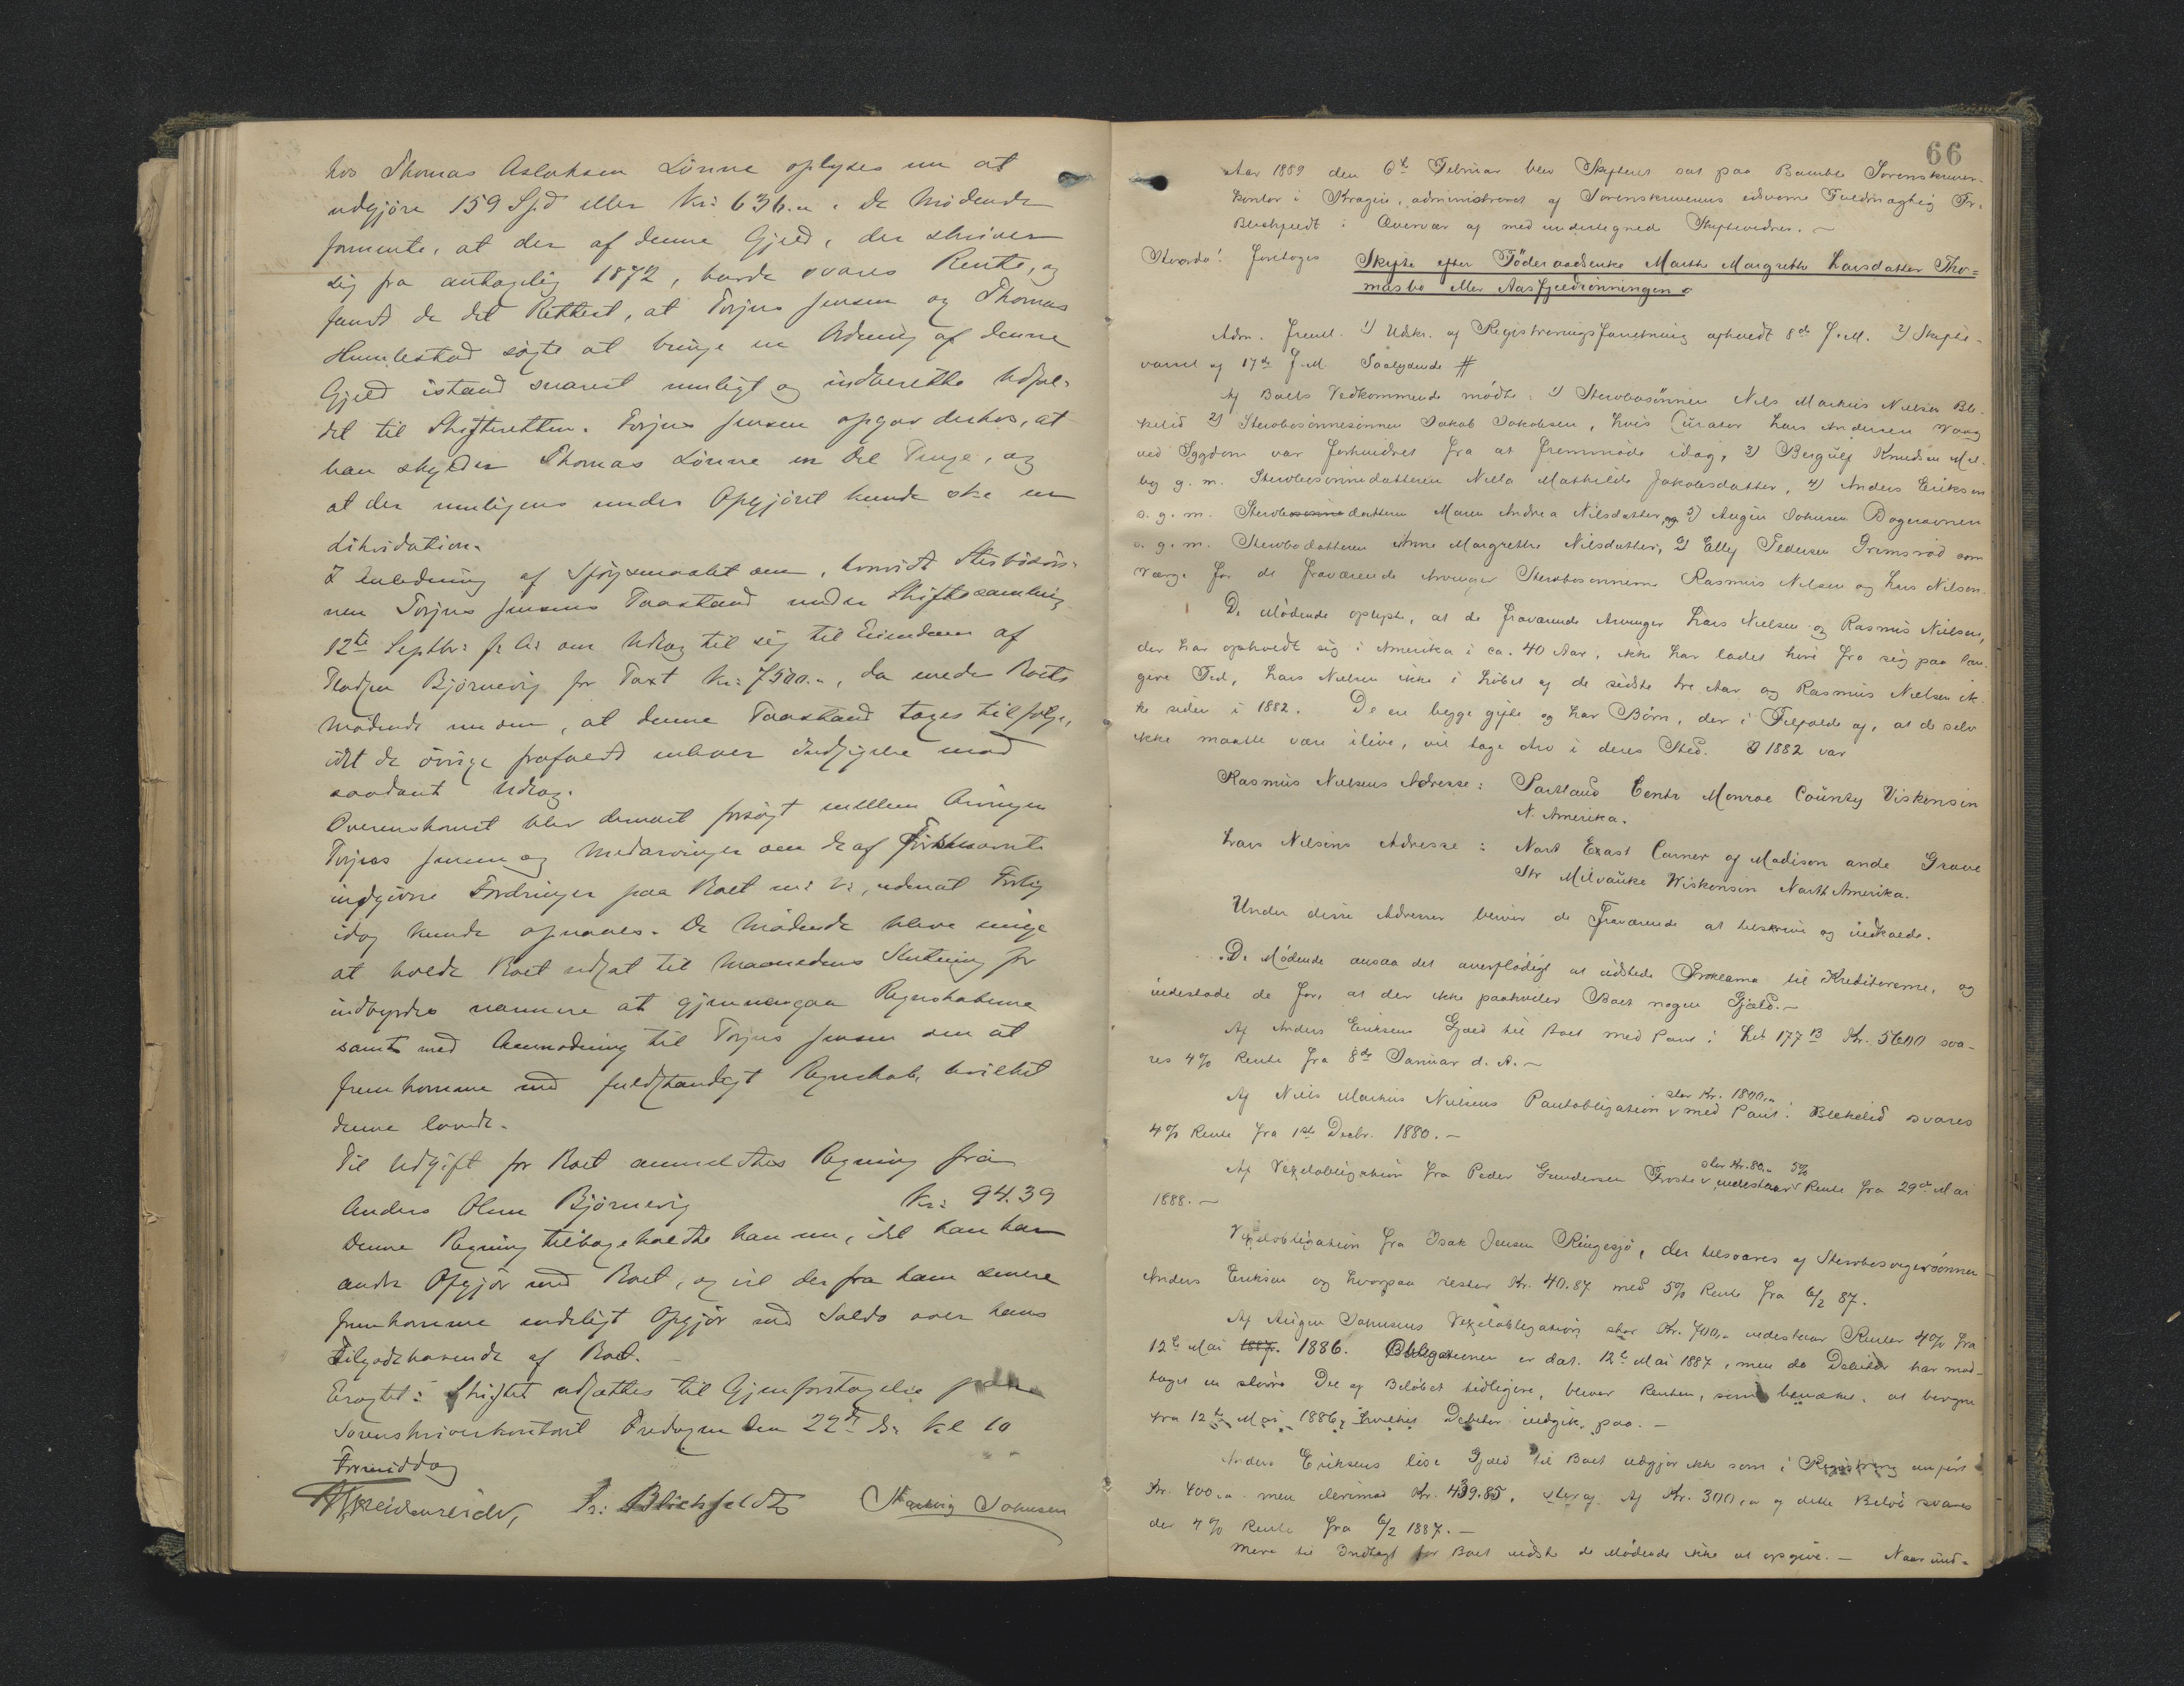 hos Thomas Aslaksen Lönne oplyses nu at
udgjöre 159 Spd eller Kr: 636.„. De Mödende
formente, at der af denne Gjeld, der skriver
sig fra antagelig 1872, burde svares Rente, og
fandt de det Rettest, at Torjus Jensen og Thomas
Humlestad sögte at bringe en Ordning af denne
Gjeld istand snarest muligt og indberette Udfal-
det til Skifteretten. Torjus Jensen opgav derhos, at
han skylder Thomas Lönne en Del Penge, og
at der muligens under Opgjöret kunde ske en
Likvidation.
I Anledning af Spörgsmaalet om, hvorvidt Sterbösön-
nen Torjus Jensens Paastand under Skiftesamling
12te Septbr: f. A: om Udlæg til sig til Eiendom af
Pladsen Björnevig for Taxt Kr: 7500.„, da enedes Boets
Mödende nu om, at denne Paastand tages tilfölge,
idet de övrige frafaldt enhver Indsigelse mod
saadant Udlæg.
Overenskomst blev dernæst forsögt mellem Arvingen
Torjus Jensen og Medarvinger om de af Förstnævnte
indgivne Fordringer paa Boet m: V:, uden at Forlig
idag kunde opnaaes. De Mödende bleve enige
at holde Boet udsat til Maanedens Slutning for
indbyrdes nærmere at gjennemgaa Regnskaberne
samt med Anmodning til Torjus Jensen om at
fremkomme med fuldstændigt Regnskab, hvilket
denne lovede.
Til Udgift for Boet anmeldtes Regning fra
Anders Olsen Björnevig Kr: 94.39
Denne Regning tilbageholdte han nu, idet han har
andre Opgjör med Boet, og vil der fra ham senere
fremkomme endeligt Opgjör med Saldo over hans
Tilgodehavende af Boet.
Eragtet: Skiftet udsættes til Gjenforetagelse paa
Sorenskriverkontoret Fredagen den 22de ds: Kl 10
Formiddag
Fr: Blichfeldt Hartvig Johnsen
66
Aar 1889 den 6te Februar blev Skifteret sat paa Bamble Sorenskriver-
kontor i Kragerö, administreret af Sorenskriverens edsvorne Fuldmægtig Fr.
Blichfeldt i Overvær af medundertegnede Skiftevidner. —
Hvorda! foretoges Skifte efter Föderaadsenke Marthe Margrethe Larsdatter Tho=
masbo eller Aasfjeldrönningen.
Adm. freml. 1) Udskr. af Registreringsforretning afholdt 8de f. M. 2) Skifte-
varsel af 17de f. M. Saalydende #
Af Boets Vedkommende mödte: 1) Sterbosönnen Nils Markus Nielsen Ble-
kelid 2) Sterbosönnesönnen Jakob Jakobsen, hvis Curator Lars Andersen Vaag
ved Sygdom var forhindret fra at fremmöde idag, 3) Bergulf Knudsen Mel-
by g. m. Sterbosönnedatteren Nella Mathilde Jakobsdatter, 4) Anders Eriksen
s. g. m. Sterbosönnedatteren Maren Andrea Nilsdatter, og 5) Augen Johnsen
s. g. m. Sterbodatteren Anne Margrethe Nilsdatter, Elly Pedersen Grimsrød som
Værge for de fraværende Arvinger Sterbosönnerne Rasmus Nilsen og Lars Nilsen.
De Mödende oplyste, at de fraværende Arvinger Lars Nielsen og Rasmus Nielsen,
der har opholdt sig i Amerika i ca. 40 Aar, ikke har ladet höre fra sig paa læn-
gere Tid, Lars Nielsen ikke i Löbet af de sidste tre Aar og Rasmus Nielsen ik-
ke siden i 1882. De ere begge gifte og har Börn, der i Tilfælde af, at de selv
ikke maatte være ilive, vil tage Arv i deres Sted. I 1882 var
Rasmus Nielsens Adresse: Portland Centr Monroe County Viskonsin
N. Amerika.
Lars Nielsens Adresse: Nord Exast Carner of Madison ande Grove
Str Milvauke Wiskonsin North Amerika.
Under disse Adresser bliver de Fraværende at tilskrive og indkalde.
De Mödende ansaa det overflödigt at udstede Proklama til Kreditorerne, og
indestode de for, at der ikke paahviler Boet nogen Gjæld. —
Af Anders Eriksens Gjæld til Boet med Pant i Let 177 B Kr. 5600 sva-
res 4% Rente fra 8de Januar d. A. —
Af Niels Markus Nielsens Pantobligation stor Kr. 1800,„ med Pant i Blekelid svares
4% Rente fra 1ste Decbr. 1880. —
Af Vexelobligation fra Peder Gundersen stor Kr. 80,„ indestaar 5% Rente fra 29de Mai
1888. —
Vexelobligation fra Isak Jensen Ringsjö, der tilsvares af Sterboesvigersönnen
Anders Eriksen og hvorpaa rester Kr. 40.87 med 5% Rente fra 6/2 87.
Af Augen Johnsens Vexelobligation stor Kr. 700,„ indestaar Renter 4% fra
12te Mai 1887. 1886. Obligationen er dat. 12te Mai 1887, men da Debitor har mod-
taget en större Del af Belöbet tidligere, bliver Renten, som bemærket, at beregne
fra 12te Mai 1886, hvilket Debitor indgik paa. —
Anders Eriksens löse Gjæld til Boet udgjör ikke som i Registrering anfört
Kr. 400,„ men derimod Kr. 439.85. Af Kr. 300,„ af dette Belöb svares
der 4% Rente fra 6/2 1887. —
Mere til Indtægt for Boet vidste de Mödende ikke at opgive. — Naar und-